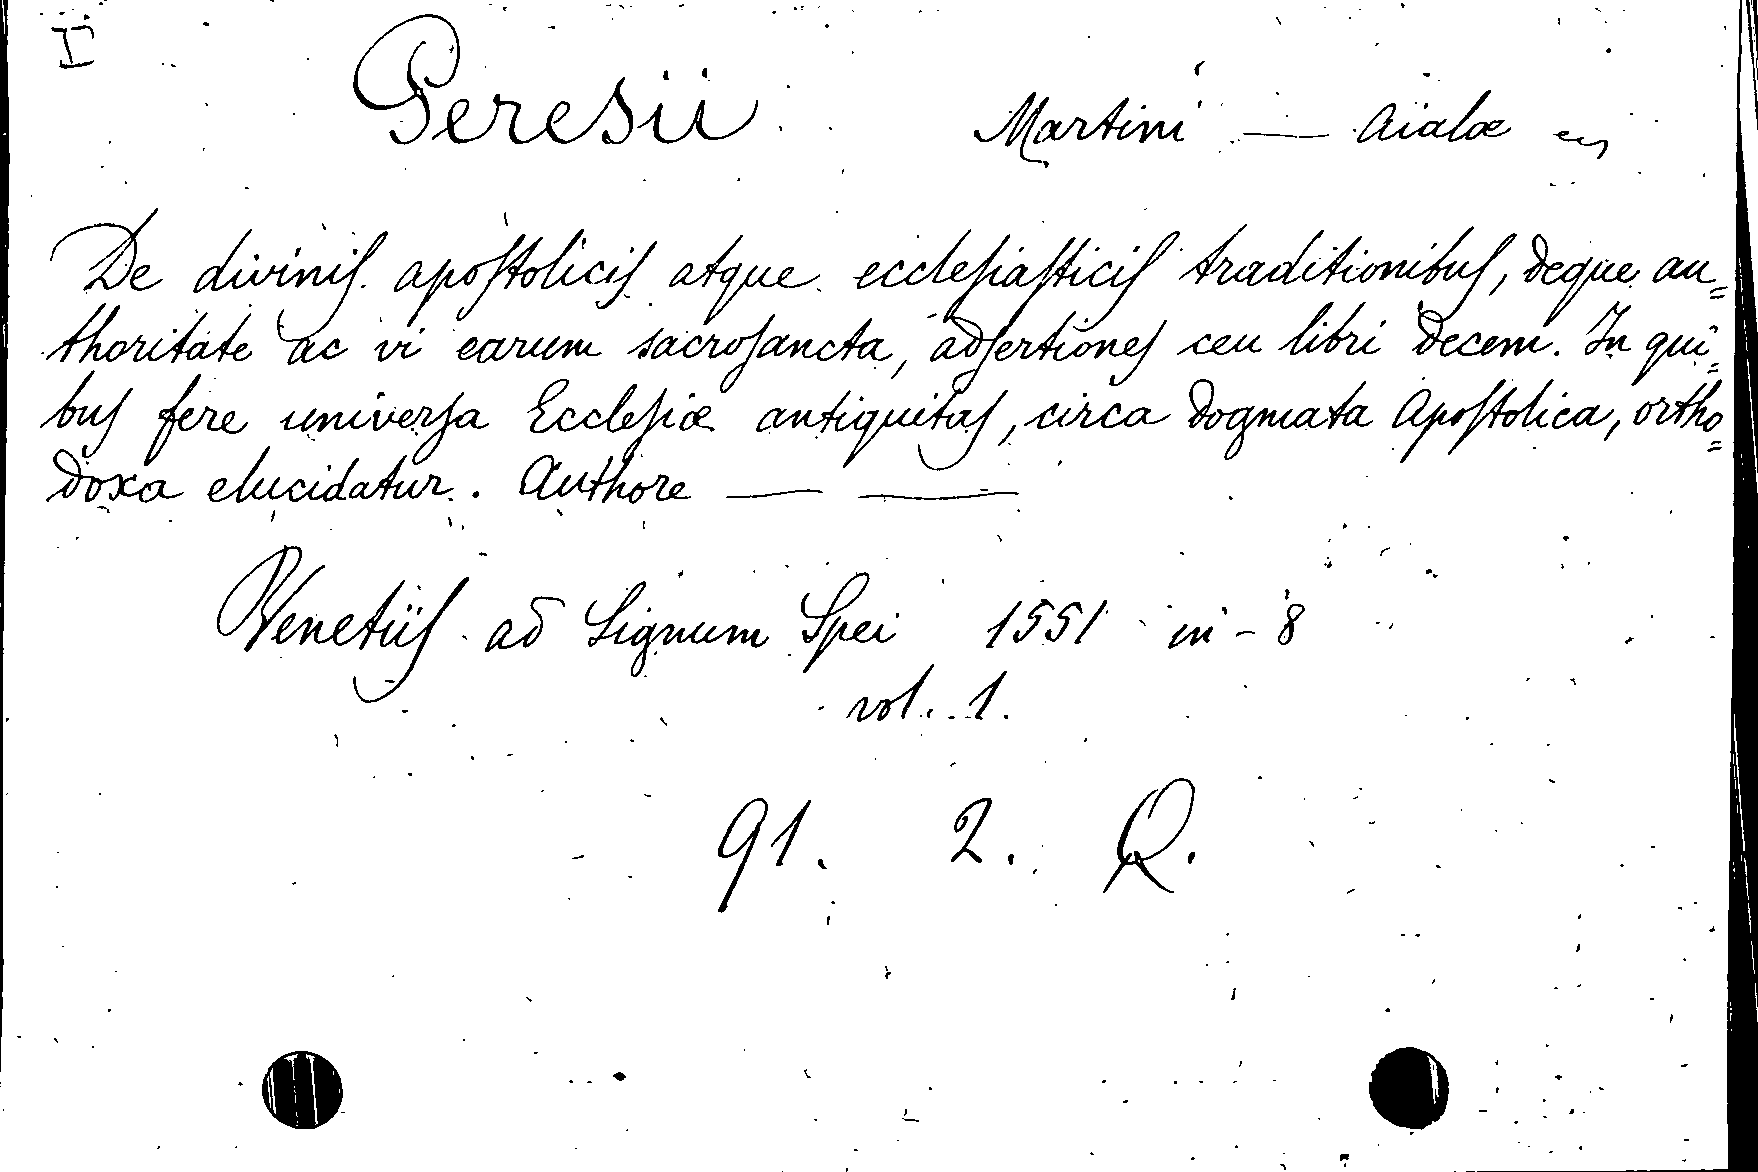 I
Peresii Martini — Aialæ
De diviniſ apoſtoliciſ atque eccleſiaſticiſ traditionibuſ, deque au=
thoritate ac vi earum sacroſancta, adſertioneſ ceu libri decem. In qui=
buſ fere univerſa Eccleſiæ antiquitaſ, circa dogmata Apoſtolica, ortho=
doxa elucidatur. Authore — —
Venetiiſ ad Signum Spei 1551 in-8
vol. 1.
91. 2. Q.